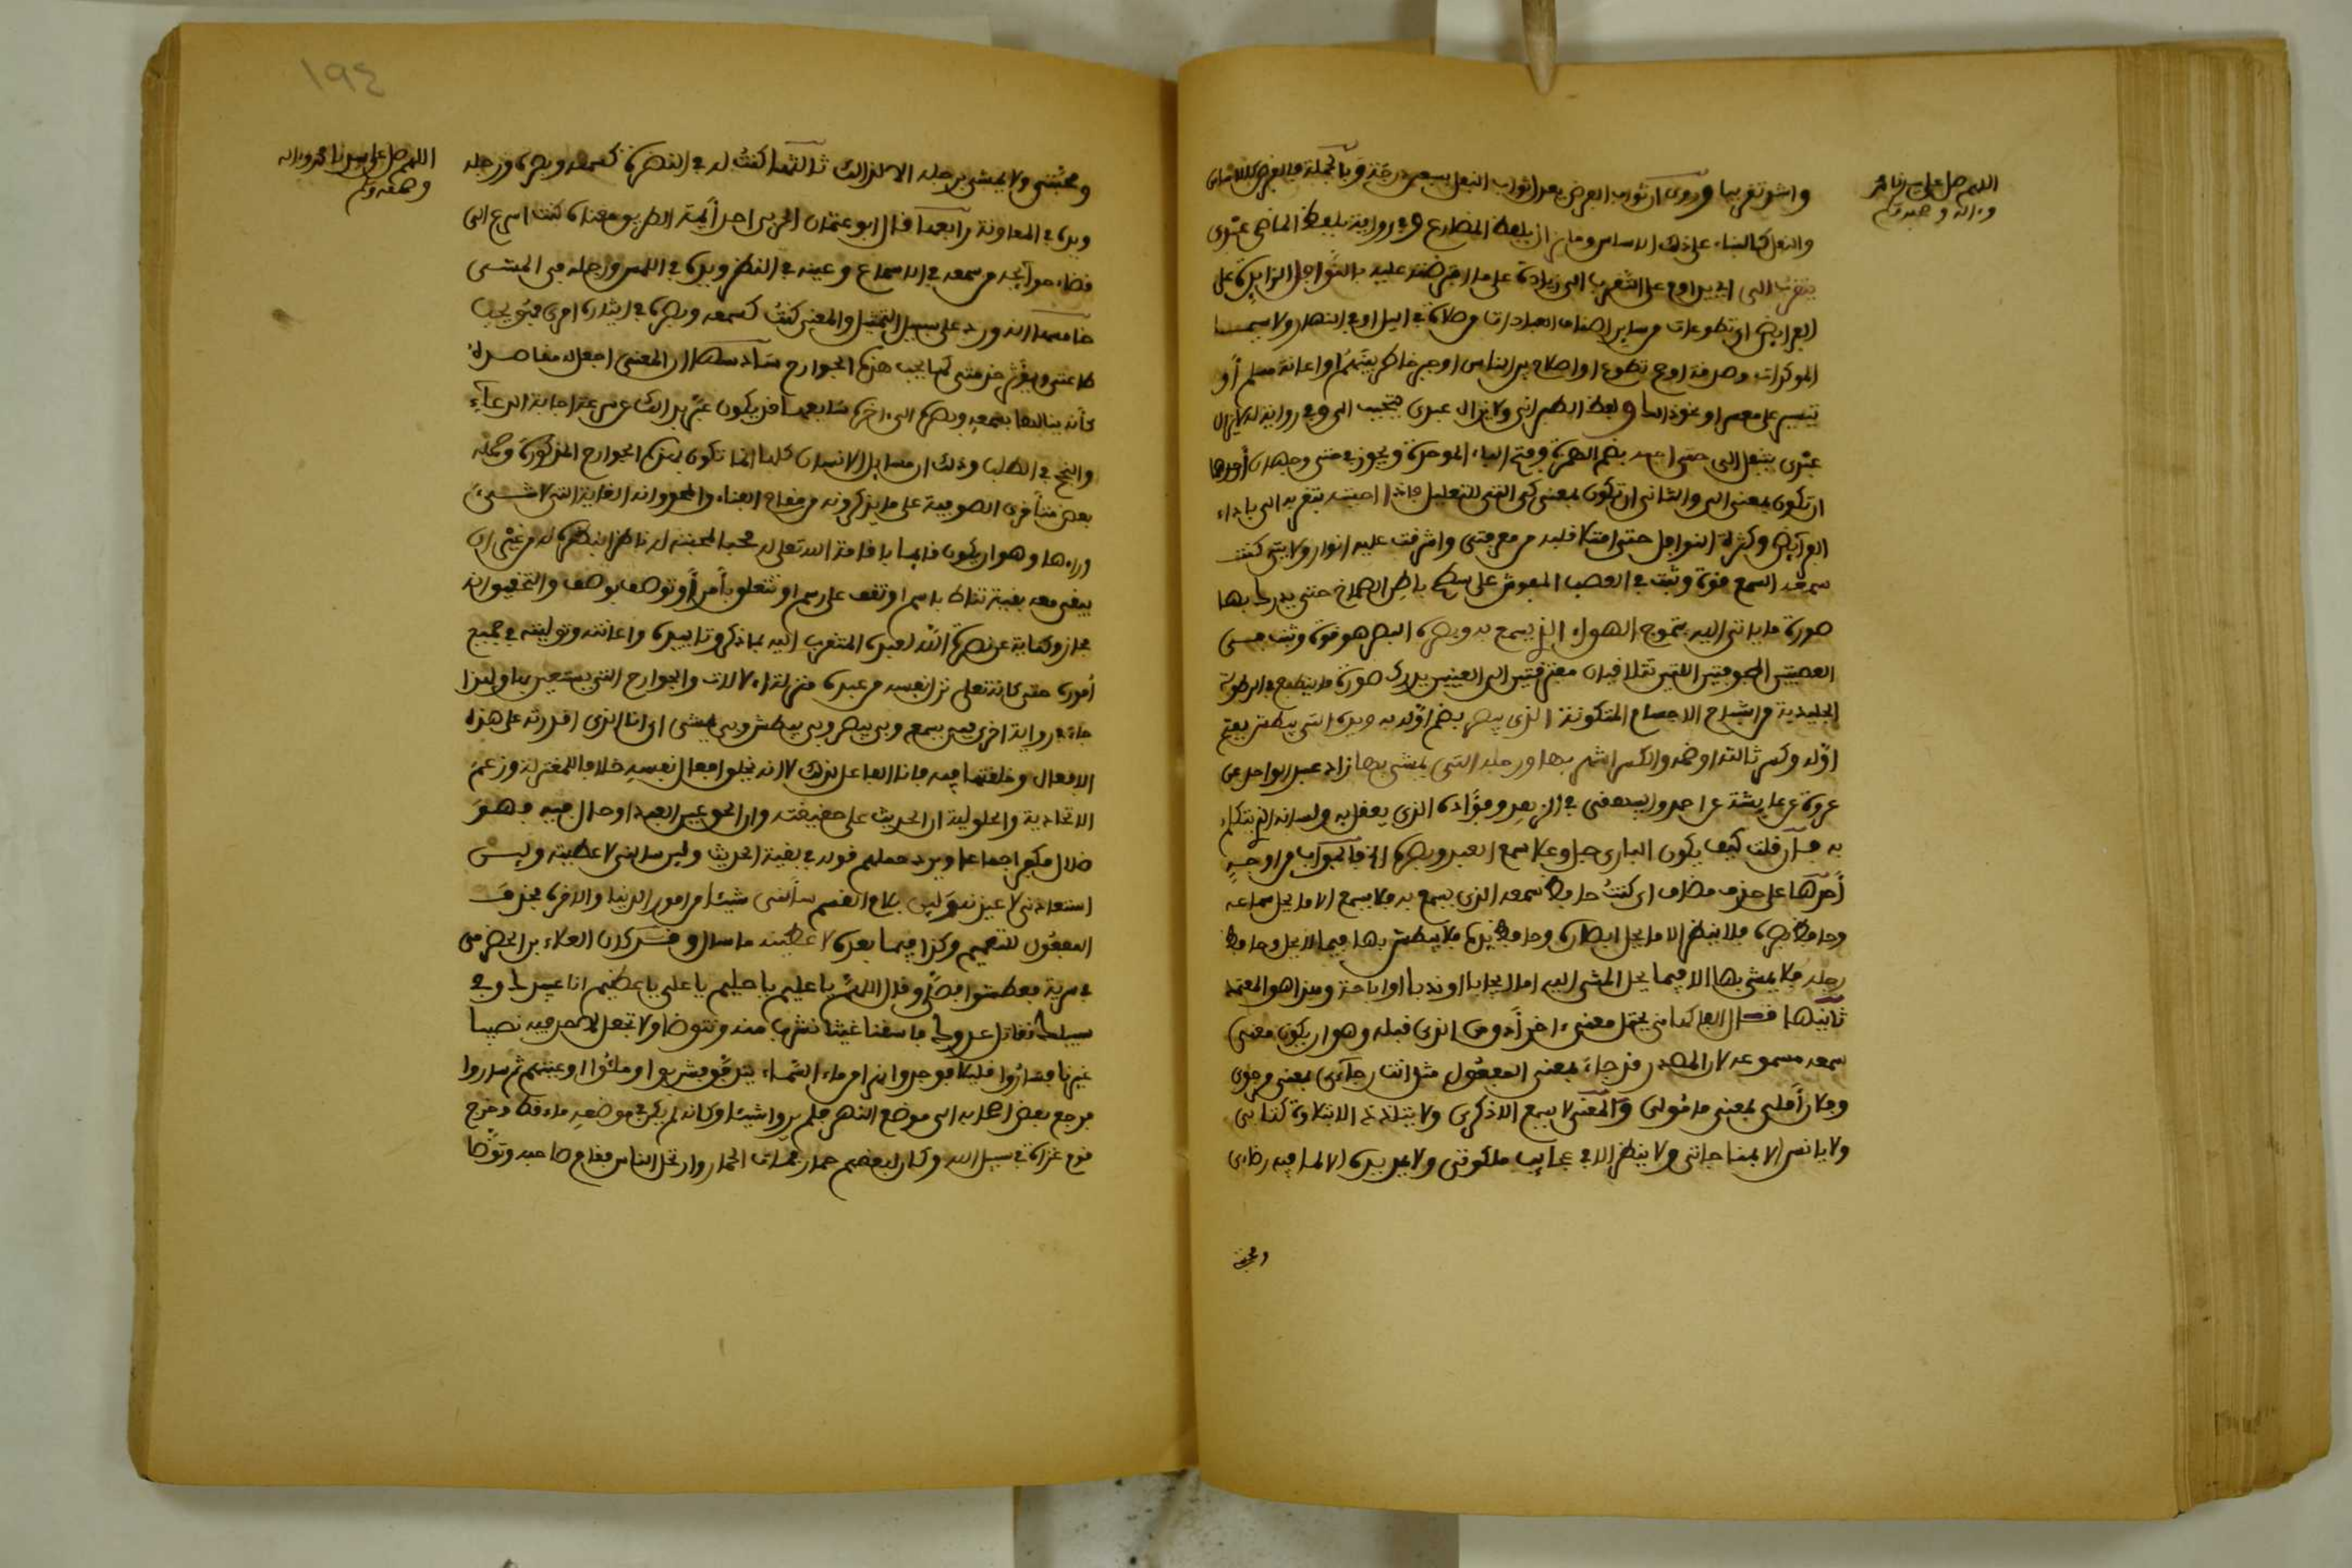 اللهم صل على سيدنا محمد
وءاله وصحبه وسلم
واشد تقربا وروي ان ثواب الفرض يعدل ثواب النفل بسبعين درجة وبالجملة فالفرض كالاساس
والنفل كالبناء على ذلك الاساس وما زال بلفظ المضارع وفي رواية بلفظ الماضي عبدي
يتقرب الي اي يداوم على التقرب الي زيادة على ما افترضته عليه بالنوافل الزايدة على
الفرايض اي تطوعات من ساير اصناف العبادات من صلاة في اليل او في النهار ولا سيما
الموكدات وصدقة او حج تطوع او اصلاح بين الناس او جبر خاطر يتيم او اعانة مسلم او
تيسير على معسر او نحو ذلك ولفظ الطبراني ولا يزال عبدي يتحبب الي وفي رواية لا يزال
عبدي يتنفل الي حتى احبه بضم الهمزة وفتح الباء الموحدة ويجوز في حتى وجهان احدهما
ان تكون بمعنى الى والثاني ان تكون بمعنى كي التي للتعليل فاذا احببته بتقربه الي باداء
الفرايض وكثرة النوافل حتى امتلا قلبه من معرفتي واشرقت عليه انوار ولايتي كنت
سمعه السمع قوة وثبت في العصب المفروش على سطح باطن الصماخ حتى يدرك بها
صورة ما يتادى اليه بتموج الهواء الذي يسمع به وبصره البصر هو قوة وثبت في
العصبتين المجوفتين اللتين تتلاقيان مفترقتين الى العينين يدرك صورة ما ينطبع في الرطوبة
الجليدية من اشباح الاجسام المتكونة الذي يبصر بضم اوله به ويده التي يبطش بفتح
اوله وكسر ثالثه او ضمه والكسر اشهر بها ورجله التي يمشي بها زاد عبد الواحد عن
عروة عن عايشة عند احمد والبيهقي في الزهد وفؤاده الذي يعقل به ولسانه الذي يتكلم
به فان قلت كيف يكون الباري جل وعلا سمع العبد وبصره الخ فالجواب من اوجه
احدها على حذف مضاف اي كنت حافظ سمعه الذي يسمع به فلا يسمع الا ما يحل سماعه
وحافظ بصره فلا ينظر الا ما يحل ابصاره وحافظ يده فلا يبطش بها فيما لا يحل وحافظ
رجله فلا يمشي بها الا فيما يحل المشي اليه اما ايجابا او ندبا او اباحة وهذا هو المعتمد
ثانيها قال الفاكهاني يحتمل معنى ءاخر ادق من الذي قبله وهو ان يكون معنى
سمعه مسموعه لان المصدر قد جاء بمعنى المفعول مثل انت رجاءي بمعنى مرجوي
وفلان املي بمعنى مامولي والمعنى لا يسمع الا ذكري ولا يتلذذ الا بتلاوة كتابي
ولا يانس الا بمناجاتي ولا ينظر الا في عجايب ملكوتي ولا يمد يده الا لما فيه رضاءي
ومحبتي
اللهم صل على سيدنا محمد وءاله
وصحبه وسلم
١٩٤
ومحبتي ولا يمشي برجله الا لذلك ثالثها كنت له في النصرة كسمعه وبصره ورجله
ويده في المعاونة رابعها قال ابو عثمان الحيري احد ايمة الطريق معناه كنت اسرع الى
قضاء حوايجه من سمعه في الاسماع وعينه في النظر ويده في اللمس ورجله في المشي
خامسها انه ورد على سبيل التمثيل والمعنى كنت كسمعه وبصره في ايثاره امري فهو يحب
طاعتي ويؤثر خدمتي كما يحب هذه الجوارح سادسها ان المعنى اجعل له مقاصده
كانه ينالها بسمعه وبصره الى ءاخره سابعها قد يكون عبر بذلك عن سرعة اجابة الدعاء
والنجح في الطلب وذلك ان مساعي الانسان كلها انما تكون بهذه الجوارح المذكورة وحمله
بعض متاخري الصوفية على ما يذكرونه من مقام الفناء والمحو وانه الغاية التي لا شيء
وراءها وهو ان يكون قايما باقامة الله تعالى له محبا لمحبته له ناظرا بنظره له من غير ان
يبقى معه بقية تناط باسم او تقف على رسم او تتعلق بامر او توصف بوصف والتحقيق انه
مجاز وكناية عن نصرة الله لعبده المتقرب اليه بما ذكر وتاييده واعانته وتوليته في جميع
اموره حتى كانه تعلى نزل نفسه من عبده منزلة الالات والجوارح التي يستعين بها ولهذا
جاء في رواية اخرى فبي يسمع وبي يبصر وبي يبطش وبي يمشي اي انا الذي اقدرته على هذه
الافعال وخلقتها فيه فانا الفاعل لذلك لا انه يخلق افعال نفسه خلافا للمعتزلة وزعم
الاتحادية والحلولية ان الحديث على حقيقته وان الحق عين العبد او حال فيه فهو
ضلال وكفر اجماعا ويرد عليهم قوله في بقية الحديث ولين سالني لاعطينه ولين
استعاذني لاعيذنه لين بلام القسم سالني شيئا من امور الدنيا والاخرة بحذف
المفعول للتعميم وكذا فيما بعده لاعطينه ما سال وقد كان العلاء بن الحضرمي
في سرية فعطشوا فصلى وقال اللهم يا عليم يا حليم يا علي يا عظيم انا عبيدك وفي
سبيلك نقاتل عدوك فاسقنا غيثا نشرب منه ونتوضا ولا تجعل لاحد فيه نصيبا
غيرنا فساروا قليلا فوجدوا نهرا من ماء السماء يتدفق فشربوا وملئوا اوعيتهم ثم ساروا
فرجع بعض اصحابه الى موضع النهر فلم يروا شيئا وكانه لم يكن في موضعه ماء قط وخرج
قوم غزاة في سبيل الله وكان لبعضهم حمار فمات الحمار وارتحل الناس فقام صاحبه وتوضا